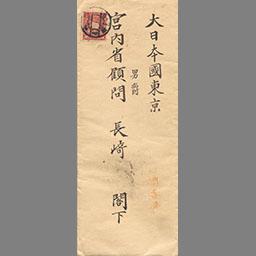 大日本國東京
宮內省顧問 男爵 長崎 閣下